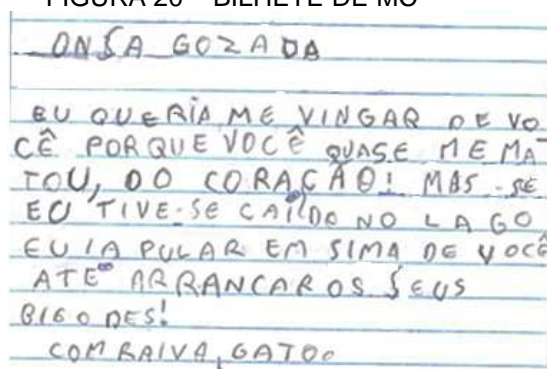 FIGURA 20 – BILHETE DE MO
ONSA GOZADA
EU QUERIA ME VINGAR DE VO
CÊ PORQUE VOCÊ QUASE ME MA-
TOU, DO CORAÇÃO! MAS SE
EU TIVE-SE CAÍDO NO LAGO
EU IA PULAR EM SIMA DE VOCÊ
ATE ARRANCAR OS SEUS
BIGODES!
COM RAIVA, GATO.